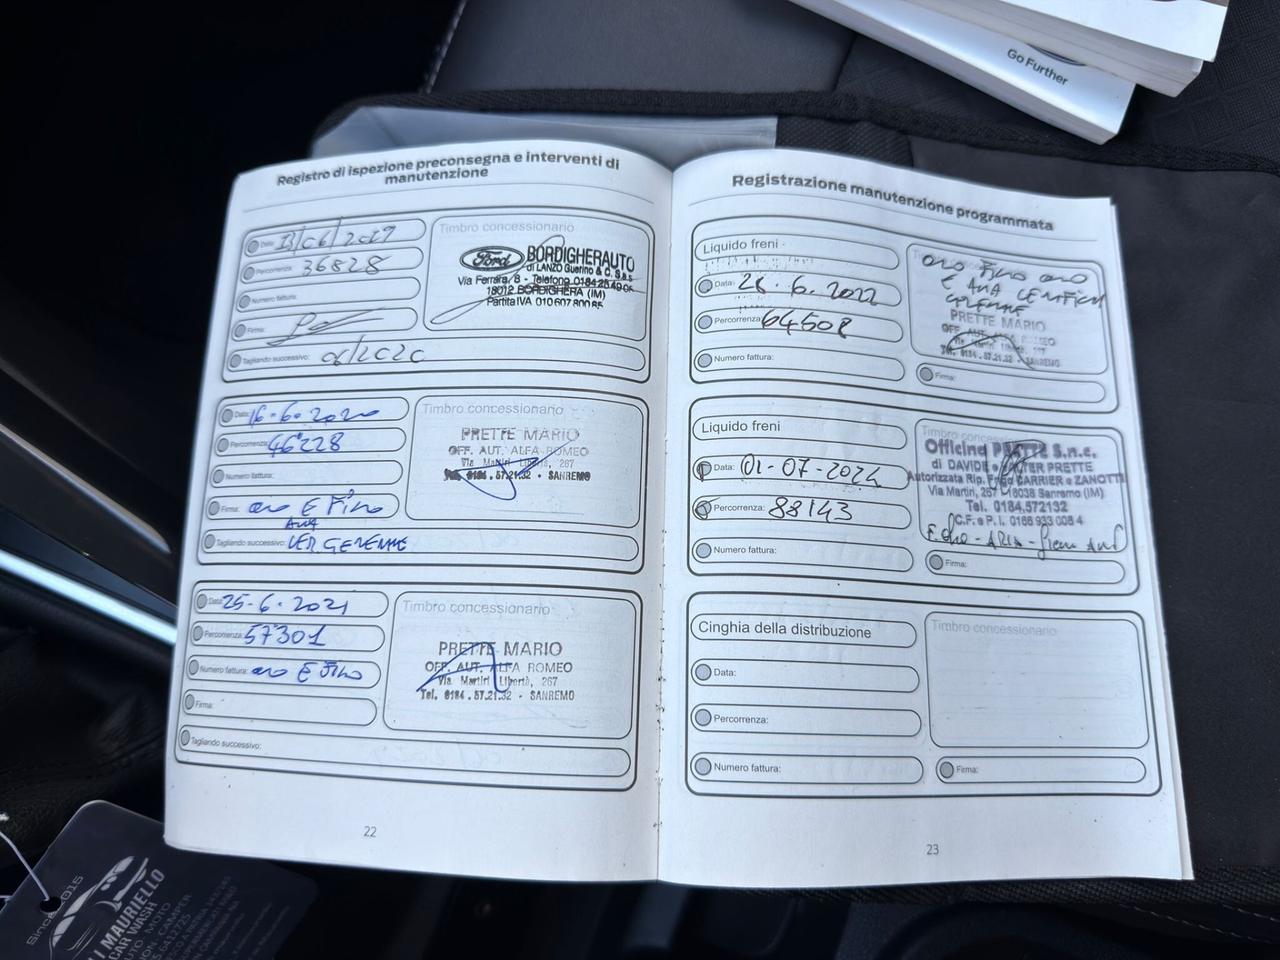 Go Further
Registro di ispezione preconsegna e interventi di
manutenzione
Data: 13/06/2019
Percorrenza: 36828
Numero fattura:
Firma:
Tagliando successivo: 06/2020
Timbro concessionario
Ford BORDIGHERAUTO
di LANZO Guerino & C. S.a.s
Via Ferrara, 8 - Telefono 0184
18012 BORDIGHERA (IM)
Partita IVA
Data: 16-6-2020
Percorrenza: 46'228
Numero fattura:
Firma: E Fino
Tagliando successivo:
Timbro concessionario
PRETTE MARIO
OFF. AUT. ALFA ROMEO
Via Martiri Libertà, 267
Tel. 0184.57.21.32 - SANREMO
Data: 25-6-2021
Percorrenza: 57301
Numero fattura: E Fino
Firma:
Tagliando successivo:
Timbro concessionario
PRETTE MARIO
OFF. AUT. ALFA ROMEO
Via Martiri Libertà, 267
Tel. 0184.57.21.32 - SANREMO
22
Registrazione manutenzione programmata
Liquido freni
Data: 28.6.2022
Percorrenza: 64508
Numero fattura:
PRETTE MARIO
OFF. AUT. ALFA ROMEO
Via Martiri Libertà, 267
Tel. 0184.57.21.32 - SANREMO
Firma:
Liquido freni
Data: 01-07-2024
Percorrenza: 88143
Numero fattura:
Timbro concessionario
Officina PRETTE S.n.c.
di DAVIDE e PRETTE
Autorizzata Rip. Frigo CARRIER e ZANOTTI
Via Martiri, 267 - 18038 Sanremo (IM)
Tel. 0184.572132
C.F. e P.I.
Firma:
Cinghia della distribuzione
Data:
Percorrenza:
Numero fattura:
Timbro concessionario
Firma:
23
Since 2015
MAURIELLO
CAR WASH